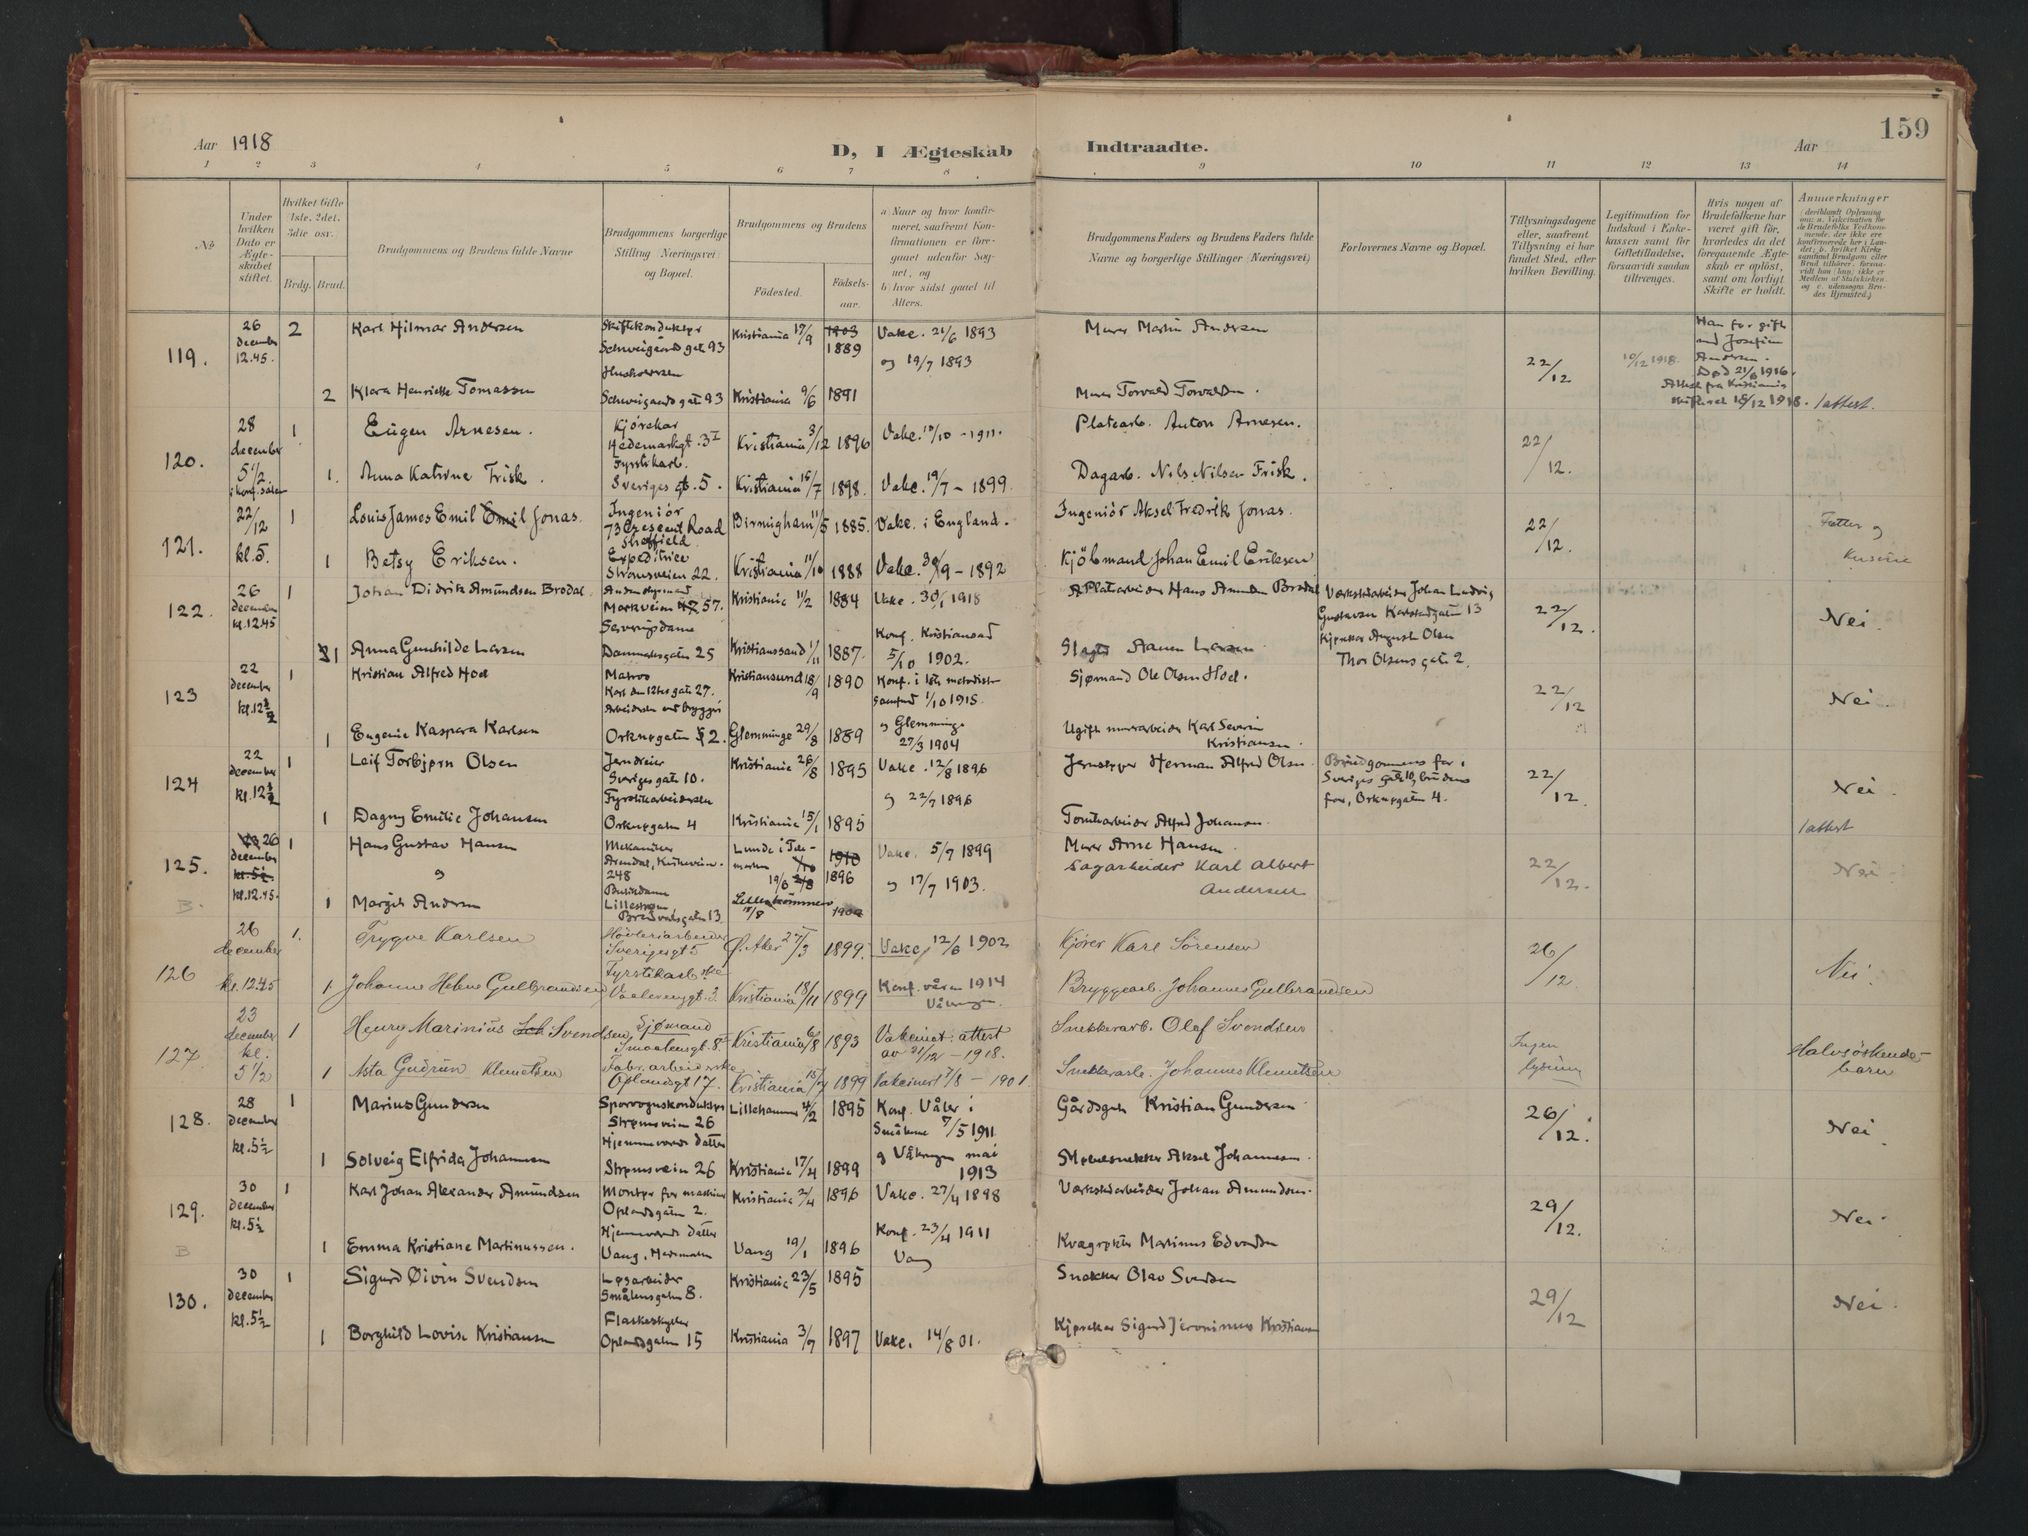 Aar 1918
D, I Ægteskab Indtraadte.
Aar
159
1 2 3 4 5 6 7 8 9 10 11 12 13 14
No
Under hvilken Dato er Ægteskabet stiftet.
Hvilket Gifte 1ste, 2det, 3die osv.
Brdg. Brud.
Brudgommens og Brudens fulde Navne
Brudgommens borgerlige Stilling (Næringsvei) og Bopæl.
Brudgommens og Brudens
Fødested.
Fødselsaar.
a) Naar og hvor konfirmeret, saafremt Konfirmationen er foregaaet udenfor Sognet, og
b) hvor sidst gaaet til Alters.
Brudgommens Faders og Brudens Faders fulde Navne og borgerlige Stillinger (Næringsvei)
Forlovernes Navne og Bopæl.
Tillysningsdagene eller, saafremt Tillysning ei har fundet Sted, efter hvilken Bevilling.
Legitimation for Indskud i Enkekassen samt for Giftetilladelse, forsaavidt saadan tiltrænges.
Hvis nogen af Brudefolkene har været gift før, hvorledes da det foregaaende Ægteskab er opløst, samt om lovligt Skifte er holdt.
Anmærkninger
119.
26 december 12.45.
2
Karl Hilmar Andersen
Schweigaards gt 93
Kristiania 17/9
1903 1889
Vakc. 21/6 1893
og 19/7 1893
Murer Martin Andersen
22/12
10/12 1918.
Han før gift med Josefine Andersen. Død 21/6 1916.
2
Klara Henriette Tomassen
Schweigaards gate 93
Kristiania 9/6
1891
Murer Torvald
1 attest.
120.
28 december 5 1/2
1
Eugen Arnesen.
Kjørekar
Hedemarksgt. 3 I
Kristiania 3/12 1896
Vakc. 10/10 - 1911.
Platearb. Anton Arnesen.
22/12.
1.
Anna Katrine Frisk.
Fyrstikarb.
Sveriges gt. 5.
Kristiania 15/7 1898.
Vakc. 19/7 - 1899.
Dagarb. Nils Nilsen Frisk.
121.
22/12 kl. 5.
1
Louis James Emil Emil Jonas.
Ingeniør
73 Crescent Road Sheffield
Birmigham 11/5 1885.
Vakc. i England.
Ingeniør Aksel Fredrik Jonas.
22/12.
Fetter og kusine
1
Betsy Eriksen.
Expeditrice
Strømsveien 22.
Kristiania 11/10 1888
Vakc. 30/9 - 1892
Kjøbmand Johan Emil Eriksen
122.
26 december kl. 12.45
1
Johan Didrik Amundsen Brodal.
Markveien 57.
Kristiania 11/2 1884
Vakc. 30/1 1918
Platarbeider Hans Amundsen Brodal
Værkstedarbeider Johan Ludvig
Gustavsen Karlstadgaten 13
Kjørekar August Olsen
Thor Olsens gate 2.
22/12.
Nei.
1
Anna Gunhilde Larsen
Danmarksgaten 25
Kristianssand 1/11 1887.
Konf. Kristiansand
5/10 1902.
Larsen
123
22 december kl. 12 1/2
1
Kristian Alfred Hoel
Matros
Karl den 12tes gate 27.
Kristiansund 18/9 1890
Konf. i 1ste metodist samfund 1/10 1915.
Sjømand Ole Olsen Hoel.
22/12
Nei.
1
Eugenie Kaspara Karlsen
Orknøgaten 2.
Glemminge 29/8 1889
og Glemminge
27/3 1904
Ugift murarbeider Karl Severin
Kristiansen.
124
22 december kl. 12 1/2
1
Leif Torbjørn Olsen
Jerndreier
Sverigesgaten 10.
Kristiania 26/8 1895
Vakc. 12/8 1896
og 22/7 1896
Herman Alfred Olsen
Brudgommens far i
Sveriges gate 10, brudens
far, Orknøgaten 4.
22/12.
Nei.
1
Dagny Emilie Johansen
Fyrstikarbeiderske
Orknøgaten 4
Kristiania 15/1 1895
Tomtearbeider Alfred Johansen.
1 attest
125.
B.
23 26 december kl. 5 1/2. kl. 12.45.
1
Hans Gustav Hansen
og
Mekaniker
Arendal,
248
Lunde i Telemarken
19/6
1910 1896
Vakc. 5/7 1899
og 17/7 1903.
Murer Arne Hansen.
Sagarbeider Karl Albert
Andersen
22/12.
Nei.
1
Margit Andersen
Lillestrøm
18/8
126
26 december kl. 12.45
1.
Trygve Karlsen
Høvleriarbeider
Sverigesgt 5
Ø. Aker 27/3 1899.
Vakc. 12/6 1902
Kjører Karl Sørensen
26/12.
Nei
1
Johanne Helene Gulbrandsen
Fyrstikarb.ske
Vaalerenggt. 3.
Kristiania 18/11 1899
Konf. våren 1914
Bryggearb. Johannes Gulbrandsen
127.
23 december kl. 5 1/2
1
Henry Marinius Svendsen
Sjømand
Smaalensgt. 8
Kristiania 6/8 1893
Vakcinat. attest
av 21/12 - 1918.
Snekkerarb. Olaf Svendsen
Ingen lysning
Halvsøskendebarn
1
Asta Gudrun Klemetsen
Fabr. arbeiderske
Oplandsgt 17.
Kristiania 15/7 1899
Vakcinert 7/8 - 1901.
Snekkerarb. Johannes Klemetsen
128.
28 december kl. 5 1/2
1
Marius Gundersen
Sporvognskonduktør
Strømsveien 26
Lillehammer 4/2 1895
Konf. Våler i
Smålene 7/5 1911
Gårdsgut Kristian Gundersen
26/12.
Nei.
1
Solveig Elfrida Johannesen
Hjemmeværende datter
Strømsveien 26
Kristiania 17/4 1899
og Vålerengen mai
1913
Møbelsnekker Aksel Johannesen.
129.
B
30 december kl. 5 1/2
1
Karl Johan Alexander Amundsen
Montør for maskiner
Oplandsgaten 2.
Kristiania 2/4 1896
Vakc. 27/4 1898
Værkstedarbeider Johan Amundsen.
29/12.
Nei.
1
Emma Kristiane Martinussen.
Hjemmeværende datter
Vang, Hedmarken
Vang 19/1 1896
Konf. 23/4 1911
Vang
Kvægrøkter Martinus Edvardsen
130.
30 december kl. 5 1/2
1
Sigurd Øivin Svendsen
Løsarbeider
Smålensgaten 8.
Kristiania 23/5 1895
Snekker Olav Svendsen
29/12
Nei.
1
Borghild Lovise Kristiansen
Flaskeskyller
Oplandsgaten 15
Kristiania 3/7 1897
Vakc. 14/8 01.
Kjørekar Sigurd Jeronimus Kristiansen